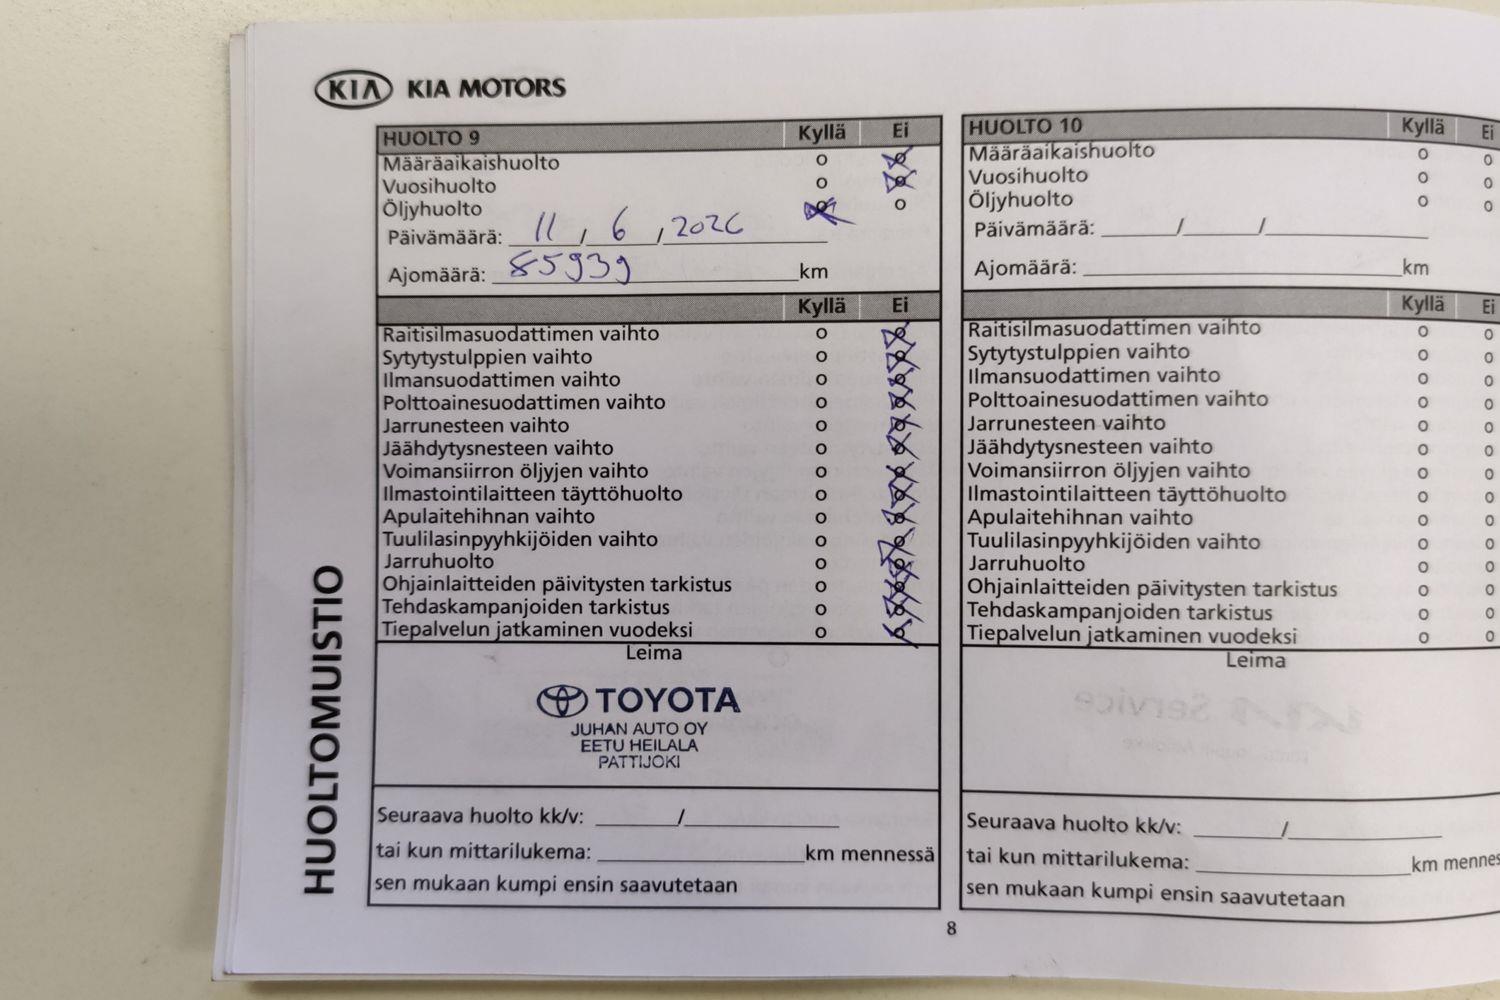 KIA KIA MOTORS
HUOLTO 9 Kyllä Ei
Määräaikaishuolto o o
Vuosihuolto o o
Öljyhuolto o o
Päivämäärä: 11 / 6 / 2026
Ajomäärä: 85939 km
Kyllä Ei
Raitisilmasuodattimen vaihto o o
Sytytystulppien vaihto o o
Ilmansuodattimen vaihto o o
Polttoainesuodattimen vaihto o o
Jarrunesteen vaihto o o
Jäähdytysnesteen vaihto o o
Voimansiirron öljyjen vaihto o o
Ilmastointilaitteen täyttöhuolto o o
Apulaitehihnan vaihto o o
Tuulilasinpyyhkijöiden vaihto o o
Jarruhuolto o o
Ohjainlaitteiden päivitysten tarkistus o o
Tehdaskampanjoiden tarkistus o o
Tiepalvelun jatkaminen vuodeksi o o
Leima
TOYOTA
JUHAN AUTO OY
EETU HEILALA
PATTIJOKI
Seuraava huolto kk/v: ______/____________
tai kun mittarilukema: ________________km mennessä
sen mukaan kumpi ensin saavutetaan
HUOLTO 10 Kyllä Ei
Määräaikaishuolto o o
Vuosihuolto o o
Öljyhuolto o o
Päivämäärä: ______/______/____________
Ajomäärä: ________________________km
Kyllä Ei
Raitisilmasuodattimen vaihto o o
Sytytystulppien vaihto o o
Ilmansuodattimen vaihto o o
Polttoainesuodattimen vaihto o o
Jarrunesteen vaihto o o
Jäähdytysnesteen vaihto o o
Voimansiirron öljyjen vaihto o o
Ilmastointilaitteen täyttöhuolto o o
Apulaitehihnan vaihto o o
Tuulilasinpyyhkijöiden vaihto o o
Jarruhuolto o o
Ohjainlaitteiden päivitysten tarkistus o o
Tehdaskampanjoiden tarkistus o o
Tiepalvelun jatkaminen vuodeksi o o
Leima
Seuraava huolto kk/v: ______/____________
tai kun mittarilukema: ________________km mennes
sen mukaan kumpi ensin saavutetaan
HUOLTOMUISTIO
8